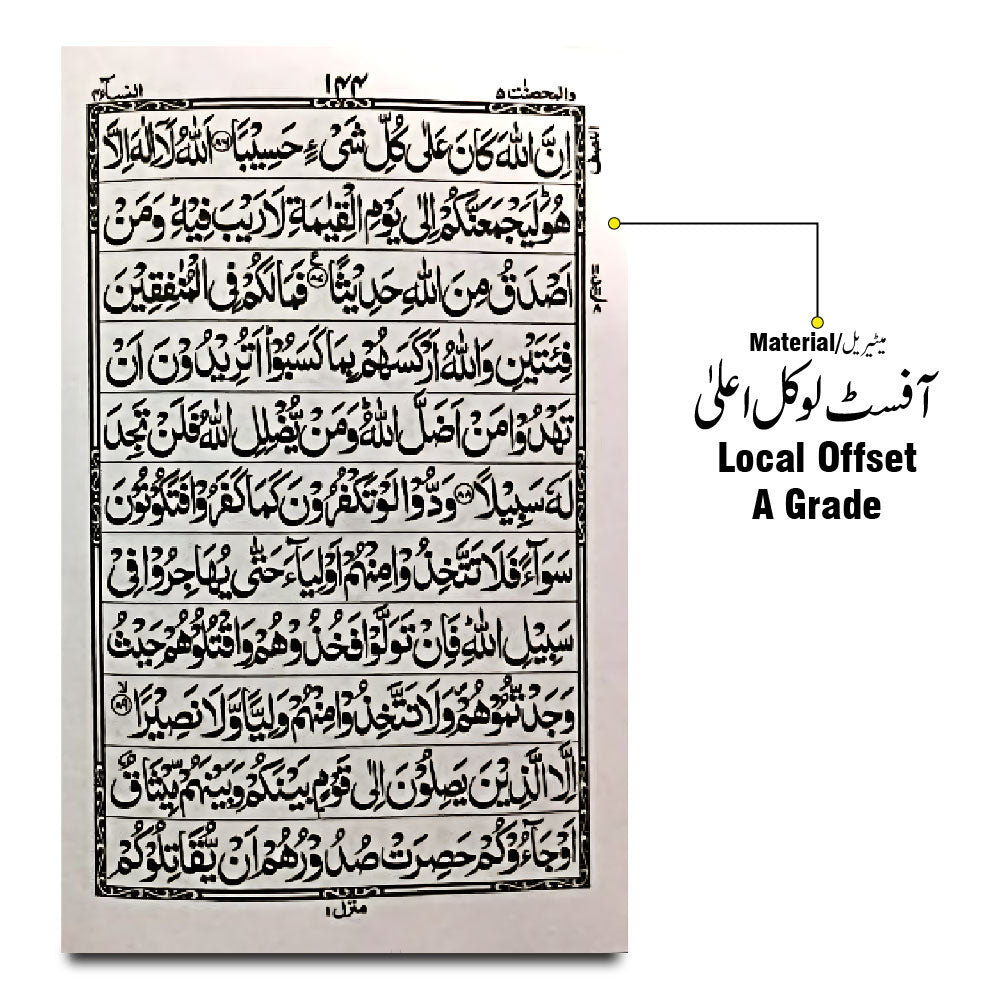 والمحصنت ۵
۱۴۴
النسآء ۴
اِنَّ اللّٰهَ كَانَ عَلٰى كُلِّ شَىْءٍ حَسِيْبًا ﴿۸۶﴾ اَللّٰهُ لَاۤ اِلٰهَ اِلَّا
هُوَؕ لَيَجْمَعَنَّكُمْ اِلٰى يَوْمِ الْقِيٰمَةِ لَا رَيْبَ فِيْهِؕ وَمَنْ
اَصْدَقُ مِنَ اللّٰهِ حَدِيْثًا ﴿۸۷﴾ فَمَا لَكُمْ فِى الْمُنٰفِقِيْنَ
فِئَتَيْنِ وَاللّٰهُ اَرْكَسَهُمْ بِمَا كَسَبُوْاؕ اَتُرِيْدُوْنَ اَنْ
تَهْدُوْا مَنْ اَضَلَّ اللّٰهُؕ وَمَنْ يُّضْلِلِ اللّٰهُ فَلَنْ تَجِدَ
لَهٗ سَبِيْلًا ﴿۸۸﴾ وَدُّوْا لَوْ تَكْفُرُوْنَ كَمَا كَفَرُوْا فَتَكُوْنُوْنَ
سَوَآءً فَلَا تَتَّخِذُوْا مِنْهُمْ اَوْلِيَآءَ حَتّٰى يُهَاجِرُوْا فِىْ
سَبِيْلِ اللّٰهِؕ فَاِنْ تَوَلَّوْا فَخُذُوْهُمْ وَاقْتُلُوْهُمْ حَيْثُ
وَجَدْتُّمُوْهُمْ وَلَا تَتَّخِذُوْا مِنْهُمْ وَلِيًّا وَّلَا نَصِيْرًا ﴿۸۹﴾
اِلَّا الَّذِيْنَ يَصِلُوْنَ اِلٰى قَوْمٍۭ بَيْنَكُمْ وَبَيْنَهُمْ مِّيْثَاقٌ
اَوْ جَآءُوْكُمْ حَصِرَتْ صُدُوْرُهُمْ اَنْ يُّقَاتِلُوْكُمْ
منزل ۱
Material/میٹیریل
آفسٹ لوکل اعلیٰ
Local Offset
A Grade